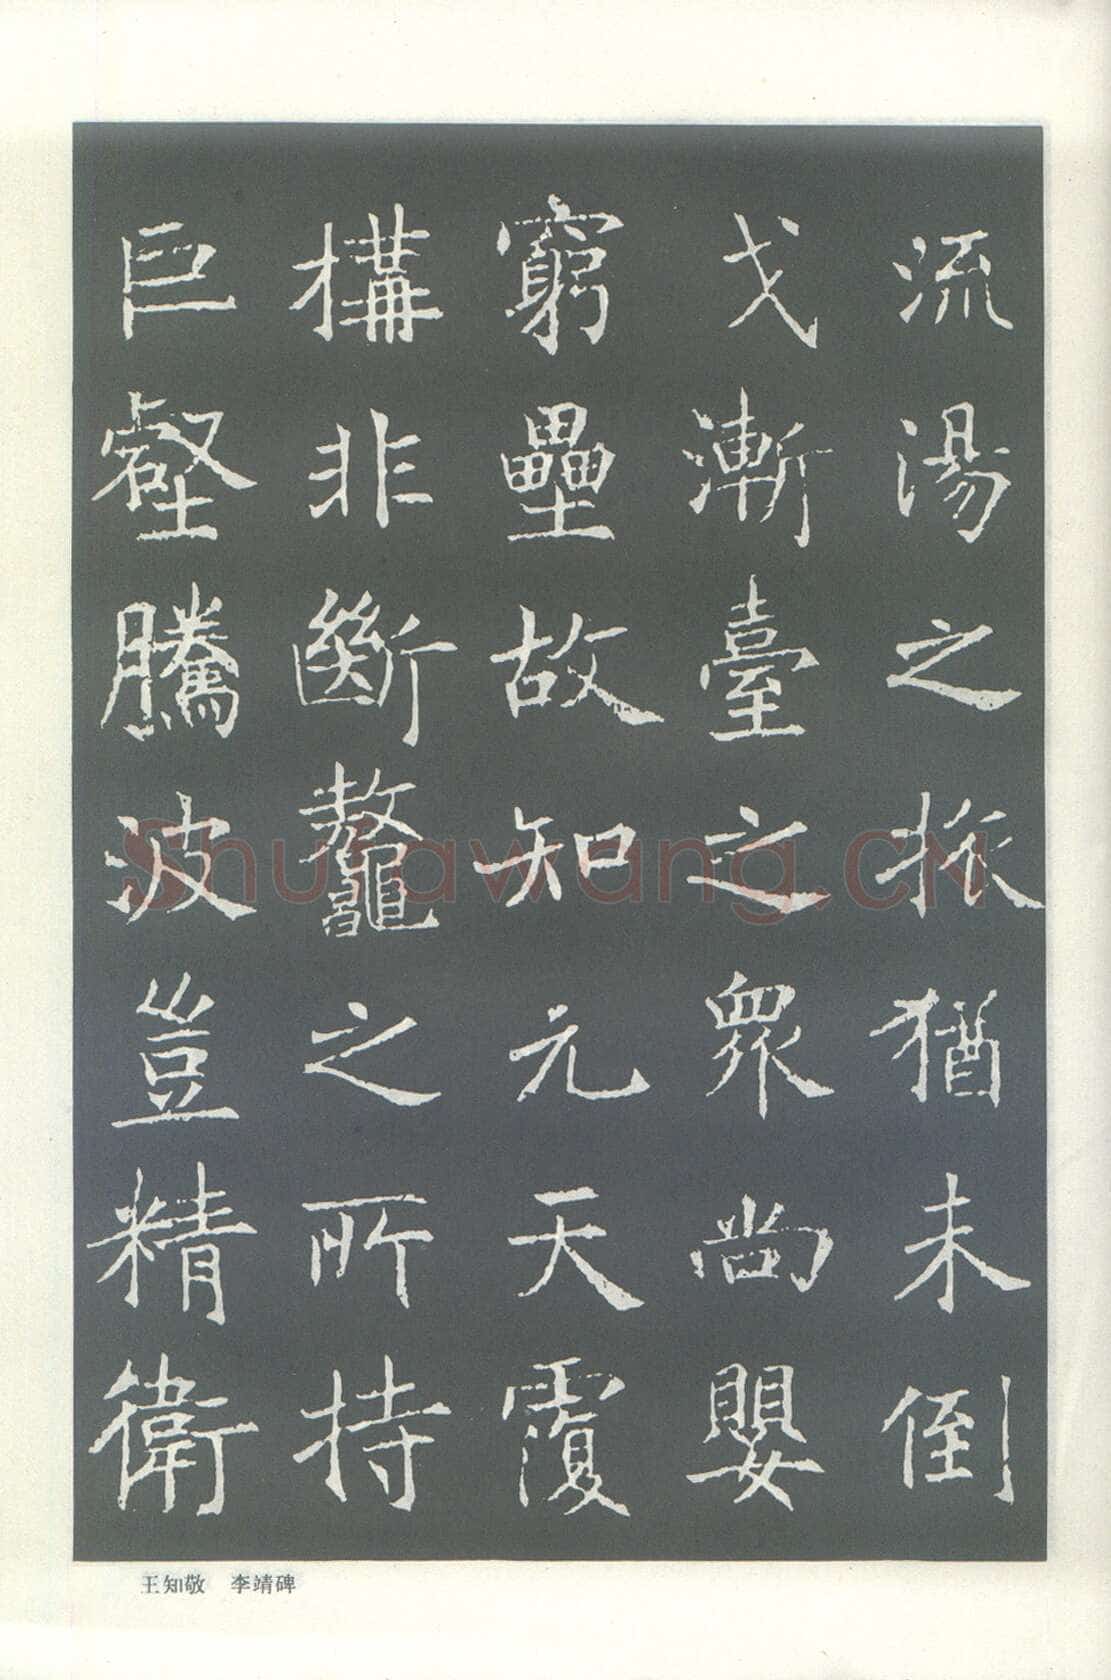 流湯之旅猶未倒
戈漸臺之眾尚嬰
窮壘故知元天覆
構非斷鼇之所持
巨壑騰波豈精衛
王知敬 李靖碑
Shufawang.CN